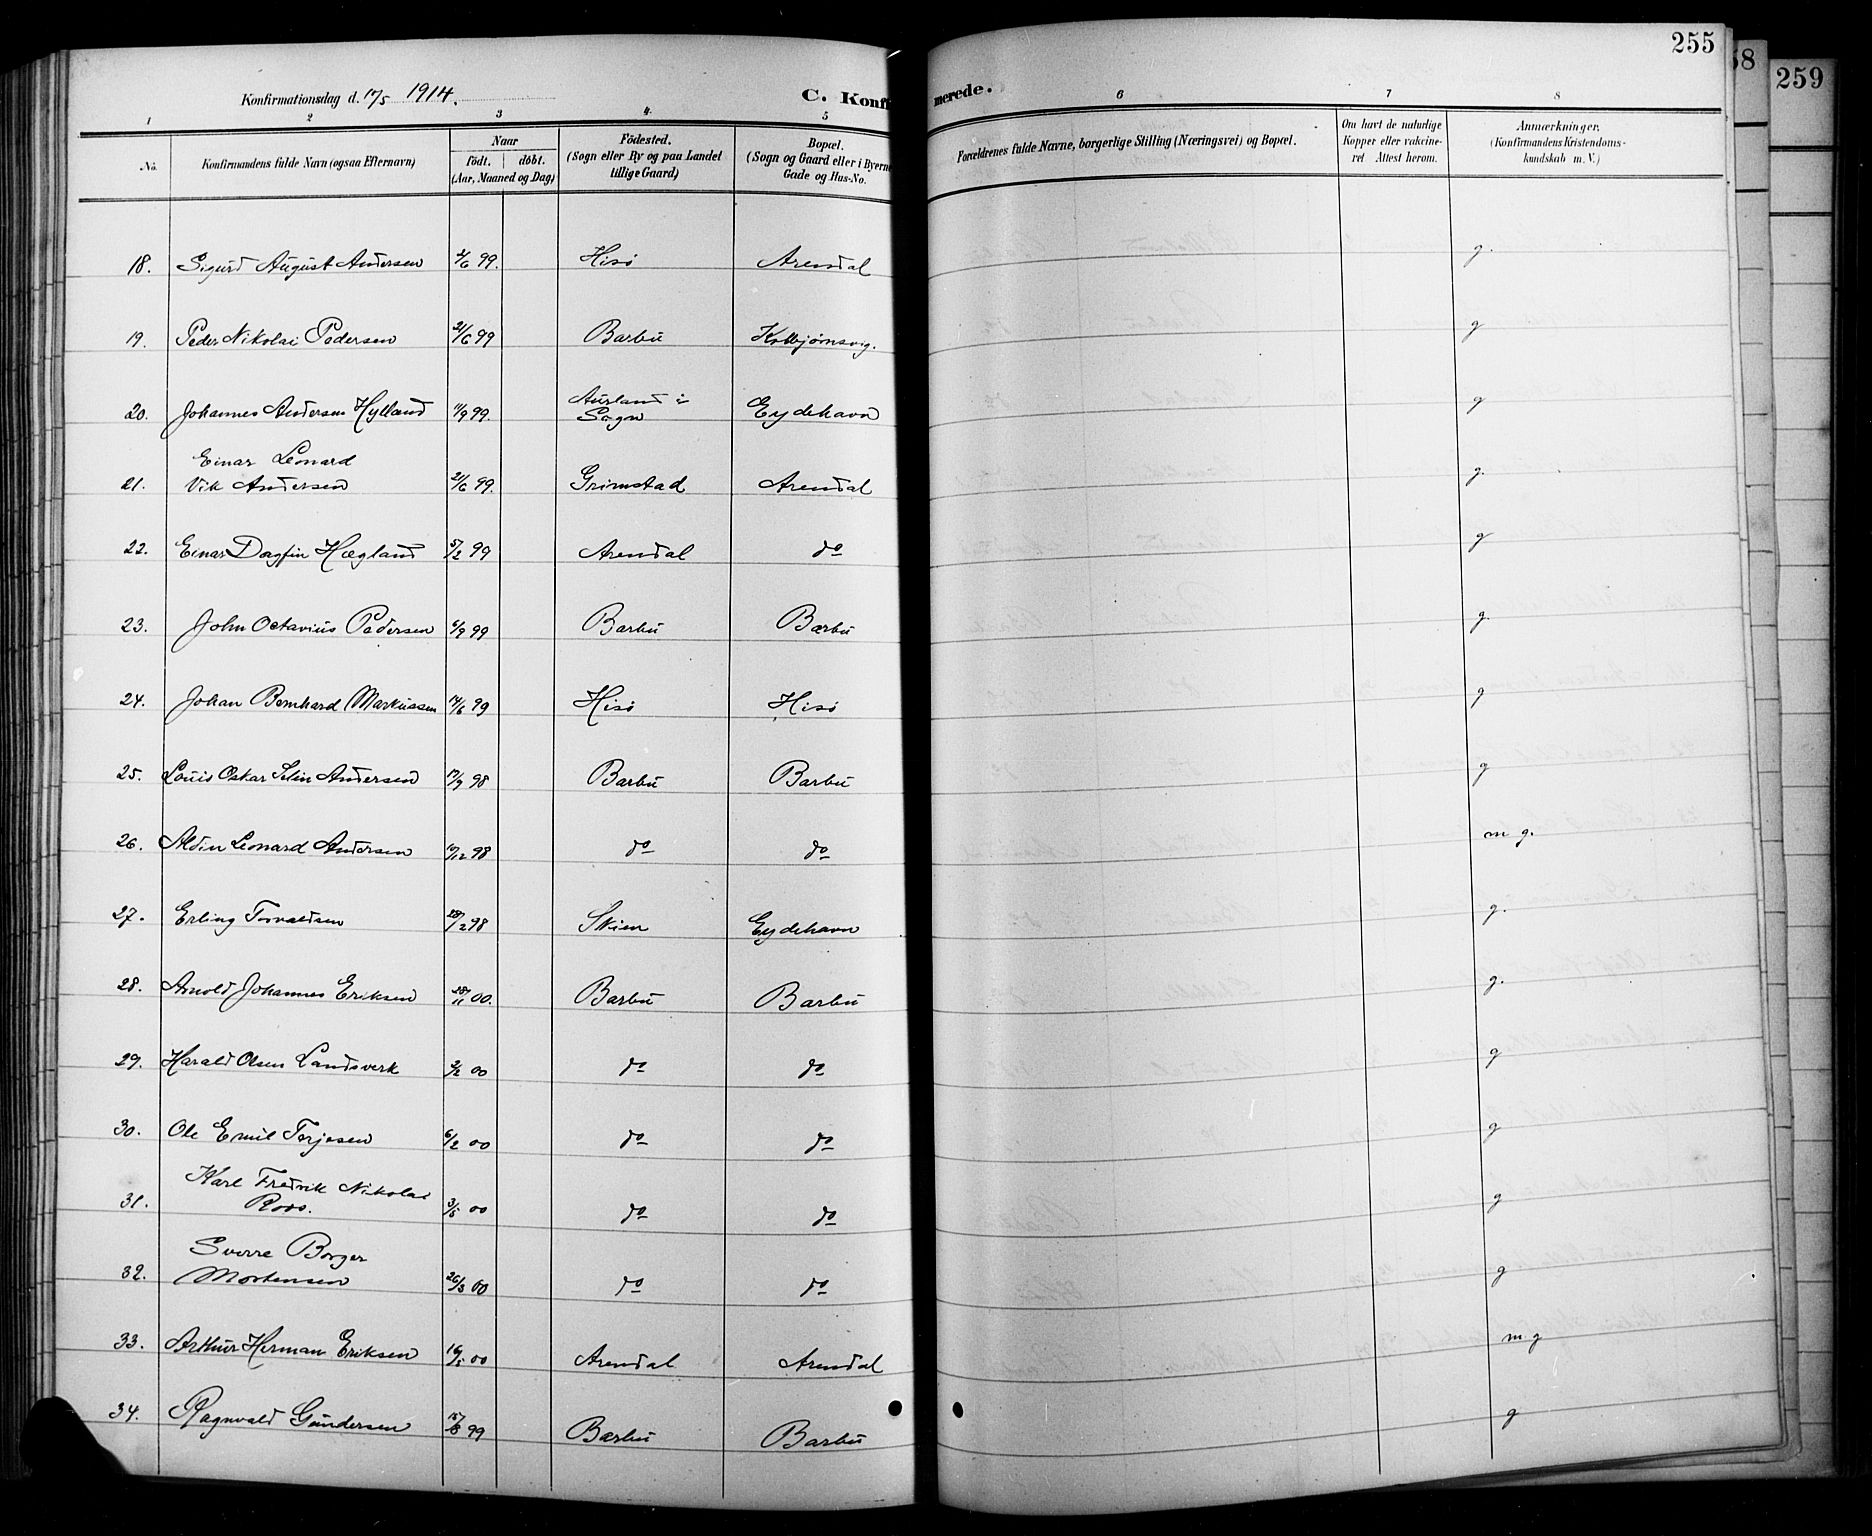 255
259
Konfirmationsdag d. 17/5 1914.
C. Konfirmerede.
1 2 3 4. 5 6 7 8
No.
Konfirmandens fulde Navn (ogsaa Efternavn)
Naar
födt. döbt.
(Aar, Maaned og Dag)
Födested.
(Sogn eller By og paa Landet
tillige Gaard)
Bopæl.
(Sogn og Gaard eller i Byerne
Gade og Hus-No.
Forældrenes fulde Navne, borgerlige Stilling (Næringsvei) og Bopæl.
Om havt de naturlige
Kopper eller vakcine-
ret Attest herom.
Anmærkninger,
(Konfirmandens Kristendoms-
kundskab m. V.)
18. Sigurd August Andersen 99. Hisö Arendal g.
19. Peder Nikolai Pedersen 21/6 99 Barbu Kolbjörnsvig. g
20. Johannes Andersen Hylland 11/9 99. Aurland i
Sogn Eydehavn g
Einar Leonard
21. Vik Andersen 21/6 99. Grimstad Arendal g.
22. Einar Dagfin Hægland 5/2 99 Arendal do g
23. John Octavius Pedersen 6/9 99 Barbu Barbu g.
24. Johan Bernhard Markussen 14/6 99 Hisö Hisö g
25. Louis Oskar Selin Andersen 17/9 98 Barbu Barbu g
26. Aldin Leonard Andersen 98 do do m g.
27. Erling Torvaldsen 28/2 98 Skien Eydehavn g.
28. Arnold Johannes Eriksen 28/11 00. Barbu Barbu g.
29. Harald Olsen Landsverk 2/2 00 do do g
30. Ole Emil Terjesen 6/2 00 do do g
Karl Fredrik Nikolai
31. Roos. 3/5 00 do do g
Sverre Borger
32. Mortensen 26/3 00 do do g
33. Arthur Herman Eriksen 16/5 00 Arendal Arendal m. g
34. Ragnvald Gundersen 99 Barbu Barbu g